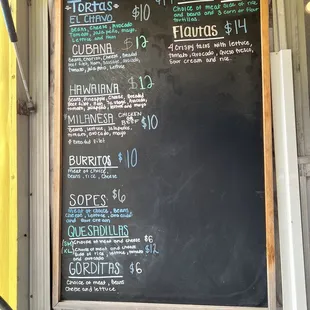 TORTAS
EL CHAVO $10
Beans, Cheese, Avocado
Tomato, Jalapeño, mayo,
Lettuce and Ham
CUBANA $12
Beans, Chorizo, Cheese, Breaded
Tomato, Jalapeño, mayo, lettuce
HAWAIIANA $12
Beans, Pineapple, Cheese, Breaded
Beef Milan, Ham, Avocado,
tomato, jalapeño, lettuce
and mayo
MILANESA CHICKEN or BEEF $10
Beans, lettuce, Jalapeños,
tomatoes, avocado, mayo
BURRITOS $10
Meat of Choice,
Beans, rice, Cheese
SOPES $6
Meat of choice, Beans
Cheese, Lettuce, avocado
and sour cream
QUESADILLAS
(SM) Choice of meat and cheese $6
(XL) Choice of meat and cheese
Side of rice, lettuce, tomato $12
and avocado
GORDITAS $6
Choice of meat, Beans
Cheese and lettuce
Choice of meat side of rice
and beans and 3 corn or flour
tortillas
Flautas $14
4 Crispy tacos with lettuce,
tomato, avocado, queso fresco,
Sour cream and rice.